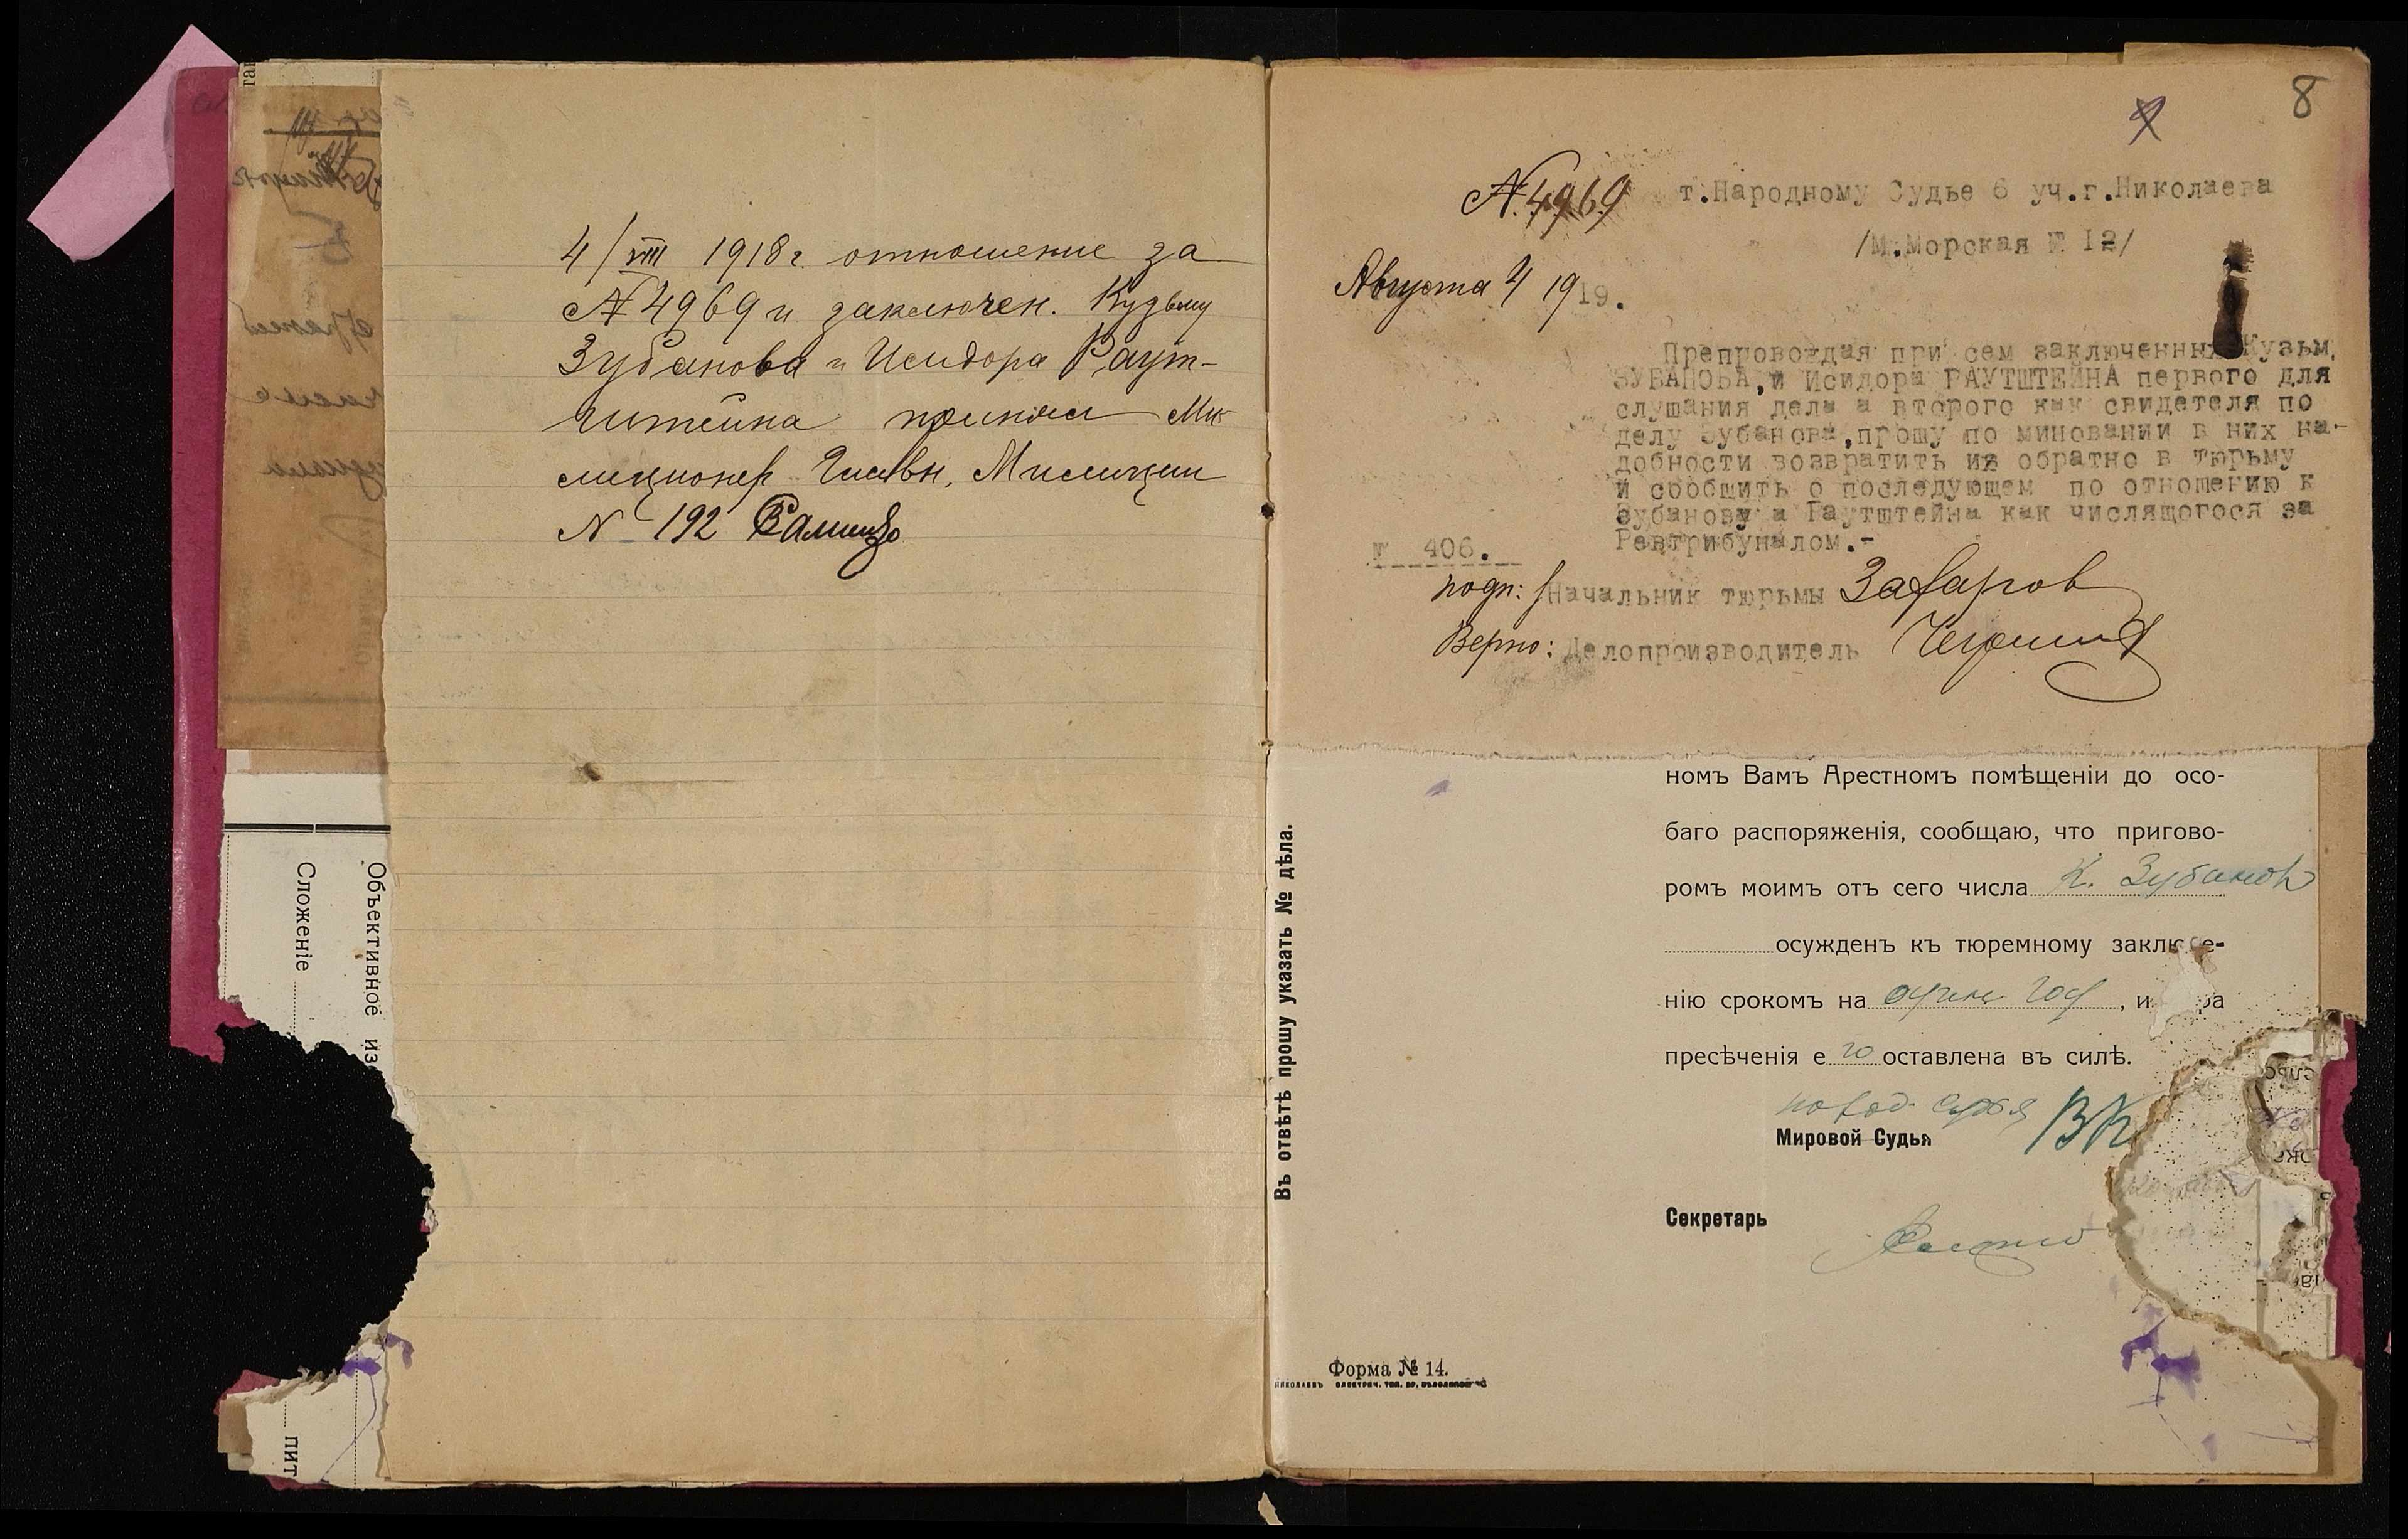 4/VIII 1918 г. отношение за
№ 4969 и заключен. Кузьму
Зубанова и Исидора Раут-
штейна принял Ми-
лиционер Главн. Милиции
№ 192
8
№ 4969
т.Народному Судье 6 уч.г.Николаева
/М.Морская № I2/
Августа 4 1919.
Препровождая при сем заключенных Кузьм.
ЗУБАНОВА,и Исидора РАУТШТЕЙНА первого для
слушания дела а второго как свидетеля по
делу Зубанова,прошу по миновании в них на-
добности возвратить их обратно в тюрьму
и сообщить о последующем по отношению к
Зубанову а Раутштейна как числящогося за
Ревтрибуналом.-
№ 406.
подп: Начальник тюрьмы Захаров
Верно: Делопроизводитель
номъ Вамъ Арестномъ помѣщеніи до осо-
баго распоряженія, сообщаю, что пригово-
ромъ моимъ отъ сего числа К. Зубанов
осужденъ къ тюремному заключе-
нію срокомъ на один год, и ра
пресѣченія е го оставлена въ силѣ.
народ. судья
Мировой Судья
Секретарь
Въ отвѣтѣ прошу указать № дѣла.
Форма № 14.
Объективное из
Сложеніе
пит